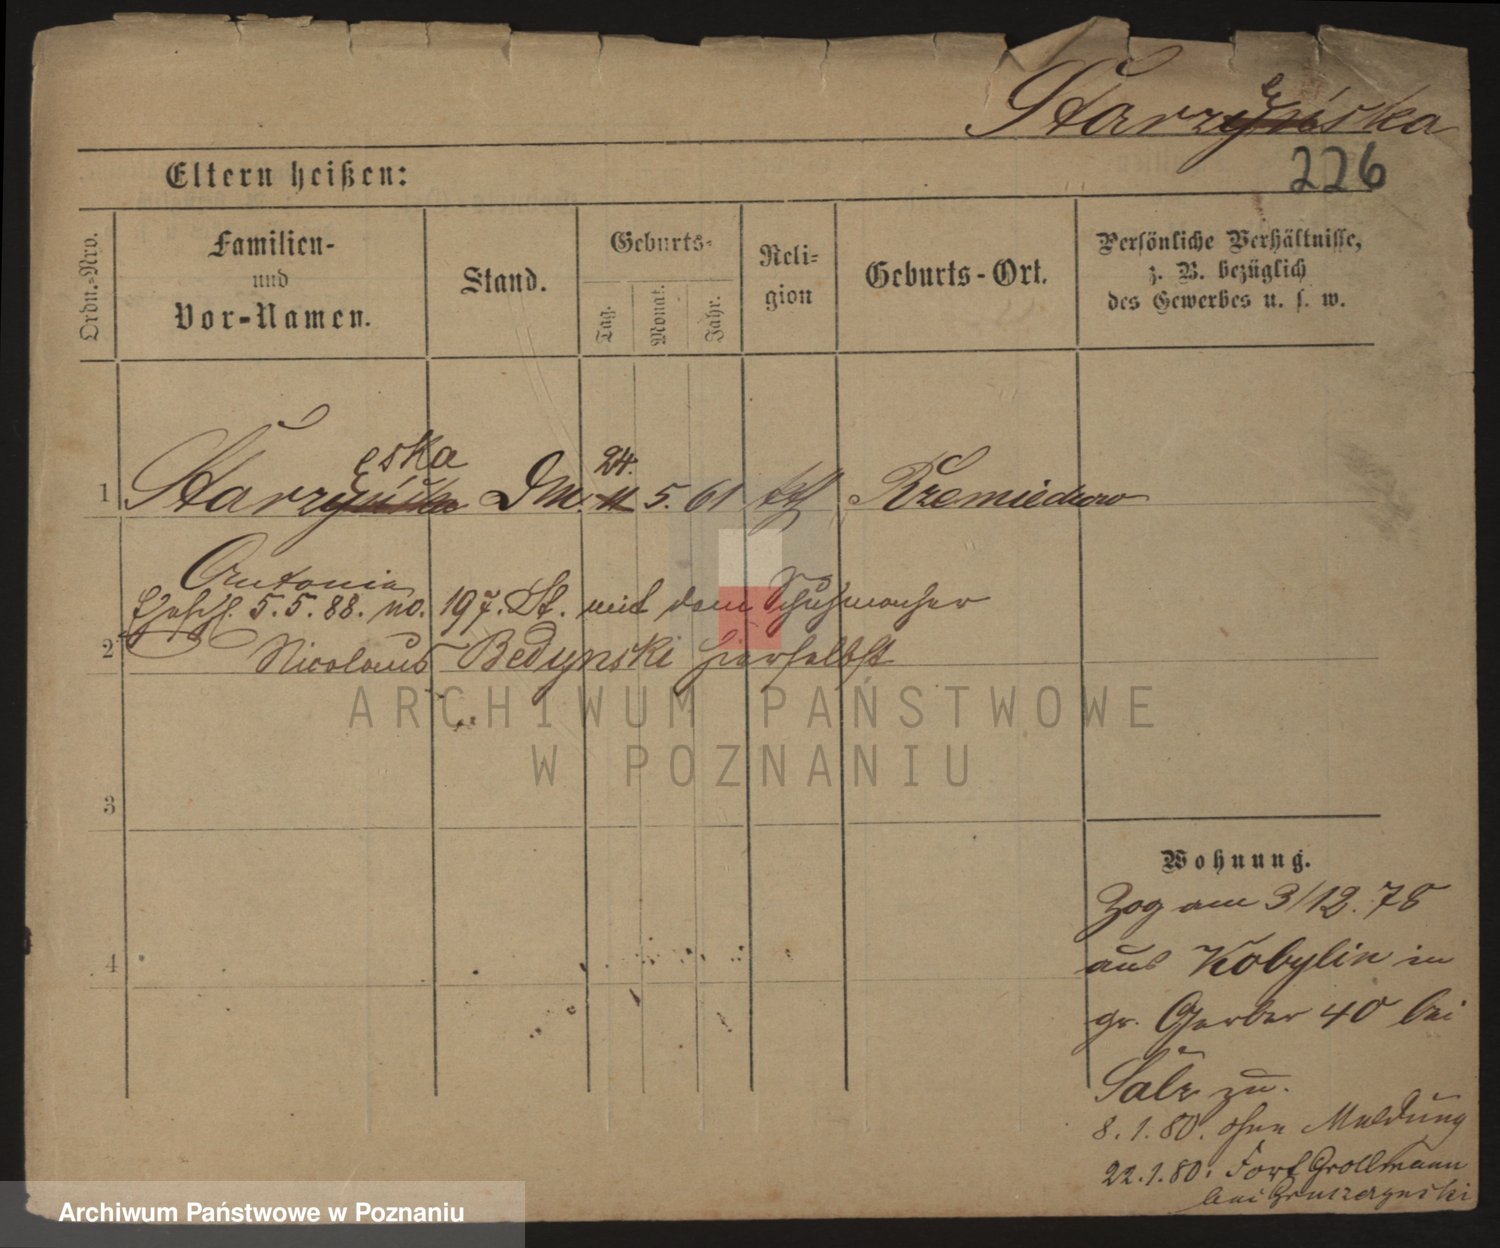 Starzyńska
e
226
Eltern heißen:
Ordn.-Nro.
Familien-
und
Vor-Namen.
Stand.
Geburts-
Tag.
Monat.
Jahr.
Reli-
gion
Geburts-Ort.
Persönliche Verhältnisse,
z. B. bezüglich
des Gewerbes u. s. w.
eska
24.
1 Starzyńska Dm. 11 5. 61 kth Krzemieniewo
Antonia
Ehesch. 5. 5. 88. no. 197. St. mit dem Schuhmacher
2 Nicolaus Bedynski hierselbst
ARCHIWUM PAŃSTWOWE
W POZNANIU
3
4
Wohnung.
Zog am 3/12. 78
aus Kobylin in
gr. Gerber 40 bei
Salz zu.
8. 1. 80. ohne Meldung
22. 1. 80. Fort Grollmann
bei
Archiwum Państwowe w Poznaniu